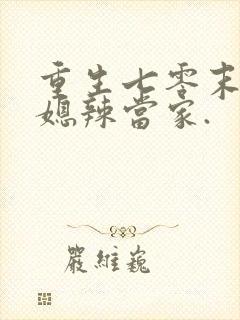 重生七零末
媳辣當家.
嚴維巍